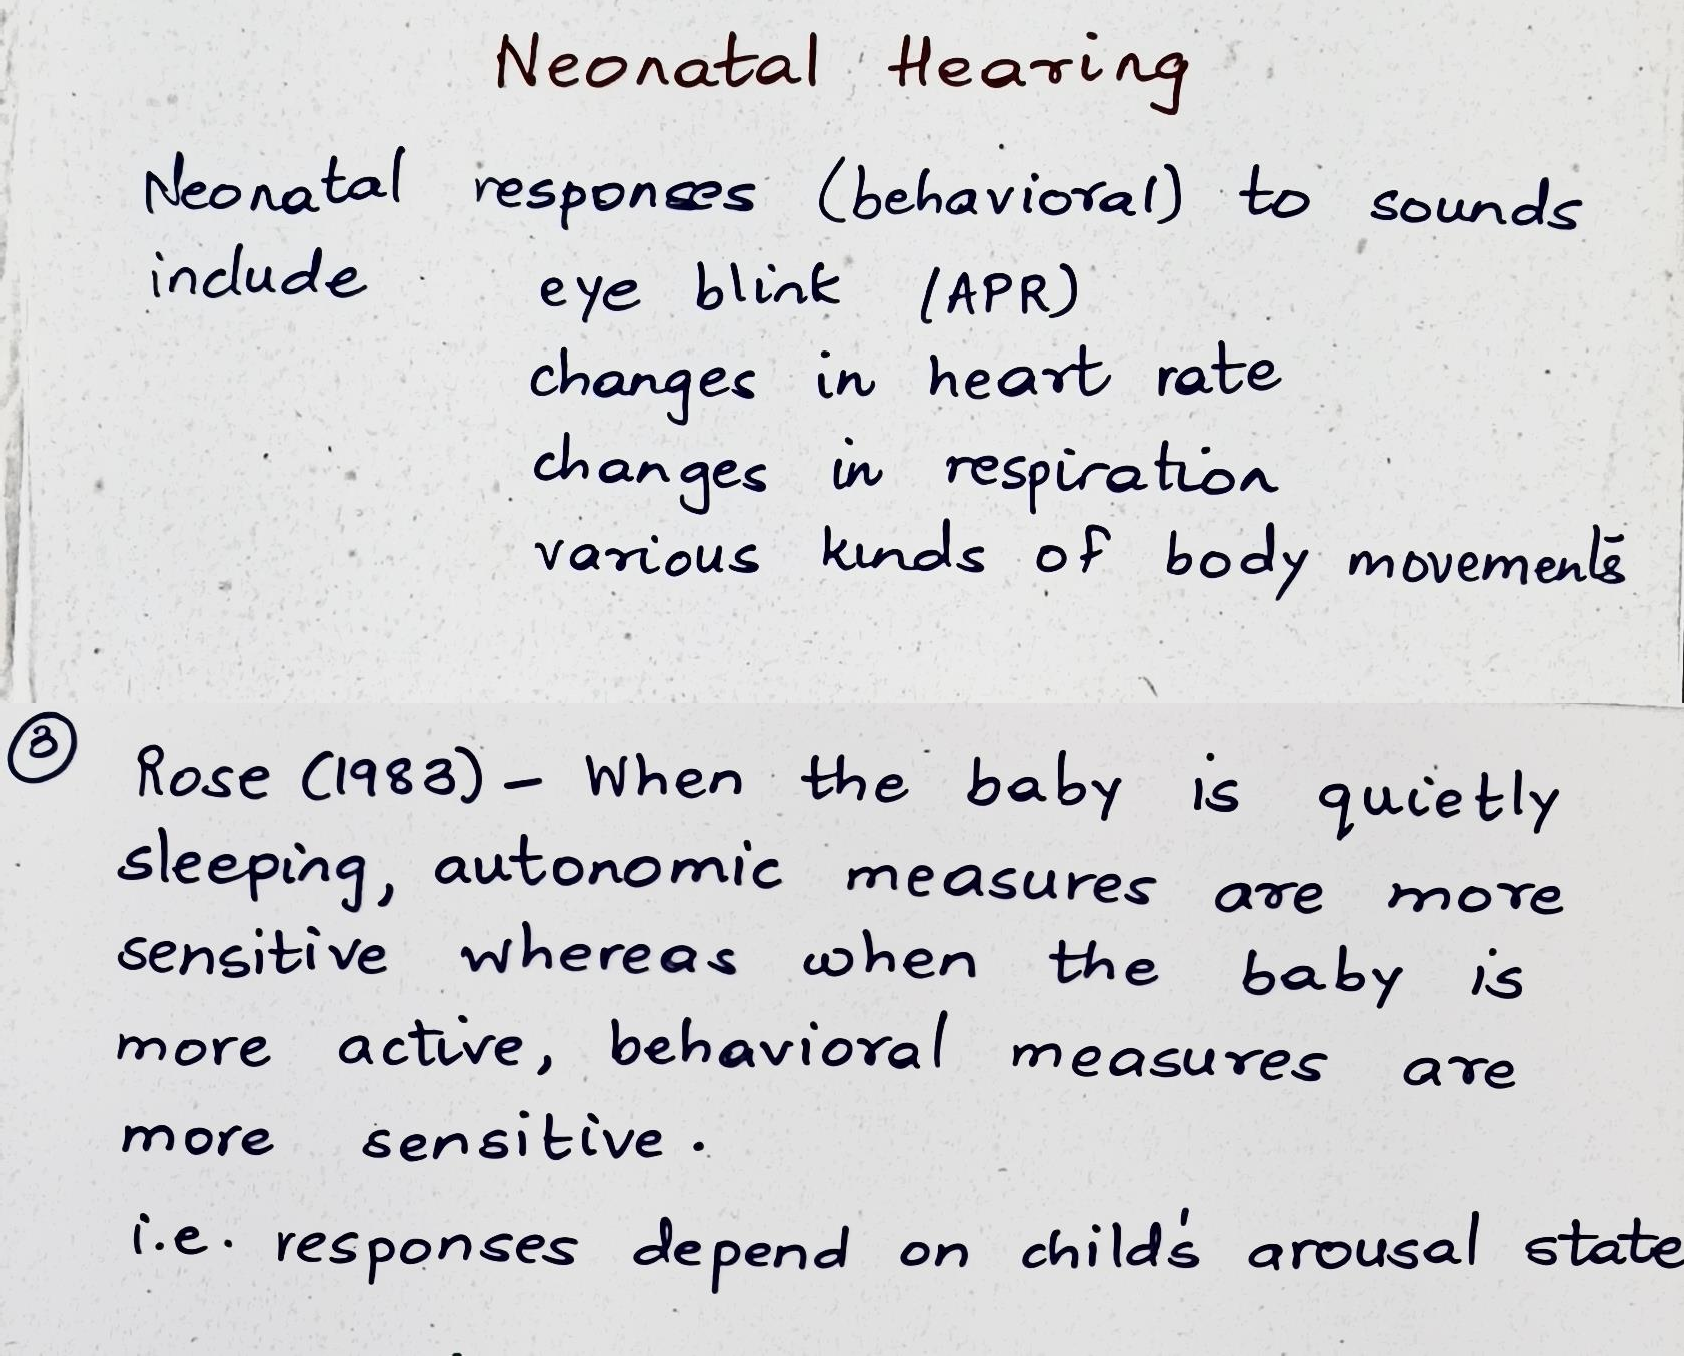 Neonatal Hearing
Neonatal responses (behavioral) to sounds
include eye blink (APR)
changes in heart rate
changes in respiration
various kinds of body movements
③ Rose (1983) – When the baby is quietly
sleeping, autonomic measures are more
sensitive whereas when the baby is
more active, behavioral measures are
more sensitive.
i.e. responses depend on child's arousal state